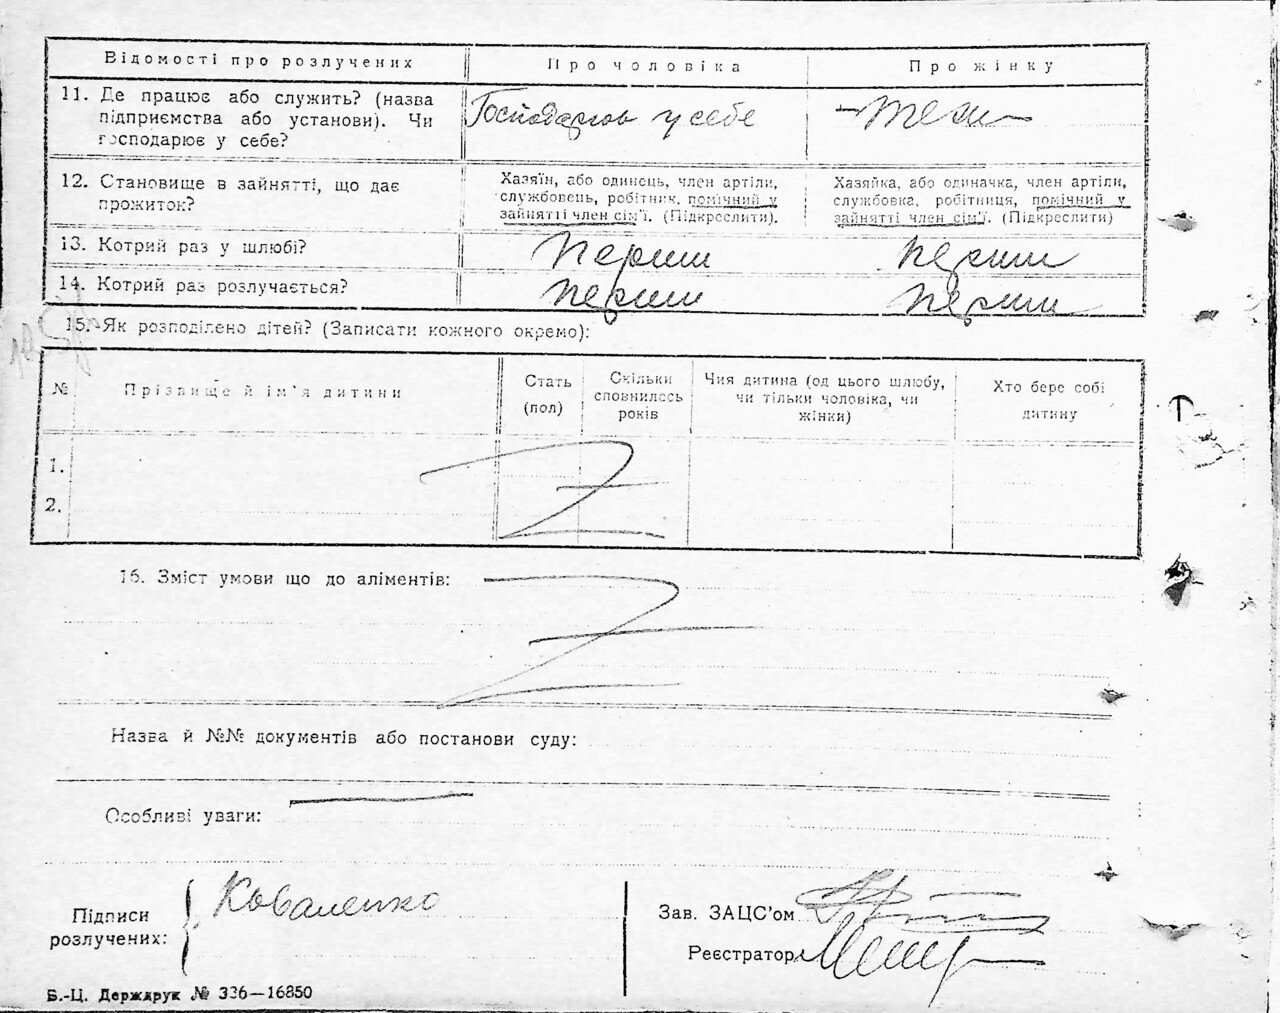 Відомості про розлучених Про чоловіка Про жінку
11. Де працює або служить? (назва
підприємства або установи). Чи
господарює у себе?
Господарює у себе
12. Становище в зайнятті, що дає
прожиток?
Хазяїн, або одинець, член артіли,
службовець, робітник, помічний у
зайнятті член сім'ї. (Підкреслити).
Хазяйка, або одиначка, член артіли,
службовка, робітниця, помічний у
зайнятті член сім'ї. (Підкреслити)
13. Котрий раз у шлюбі? перший перший
14. Котрий раз розлучається? перший перший
15. Як розподілено дітей? (Записати кожного окремо):
№ Прізвище й ім'я дитини
Стать
(пол)
Скільки
сповнилось
років
Чия дитина (од цього шлюбу,
чи тільки чоловіка, чи
жінки)
Хто бере собі
дитину
1.
2.
16. Зміст умови що до аліментів:
Назва й №№ документів або постанови суду:
Особливі уваги:
Підписи
розлучених:
Коваленко
Зав. ЗАЦС'ом
Реєстратор
Б.-Ц. Держдрук № 336—16850